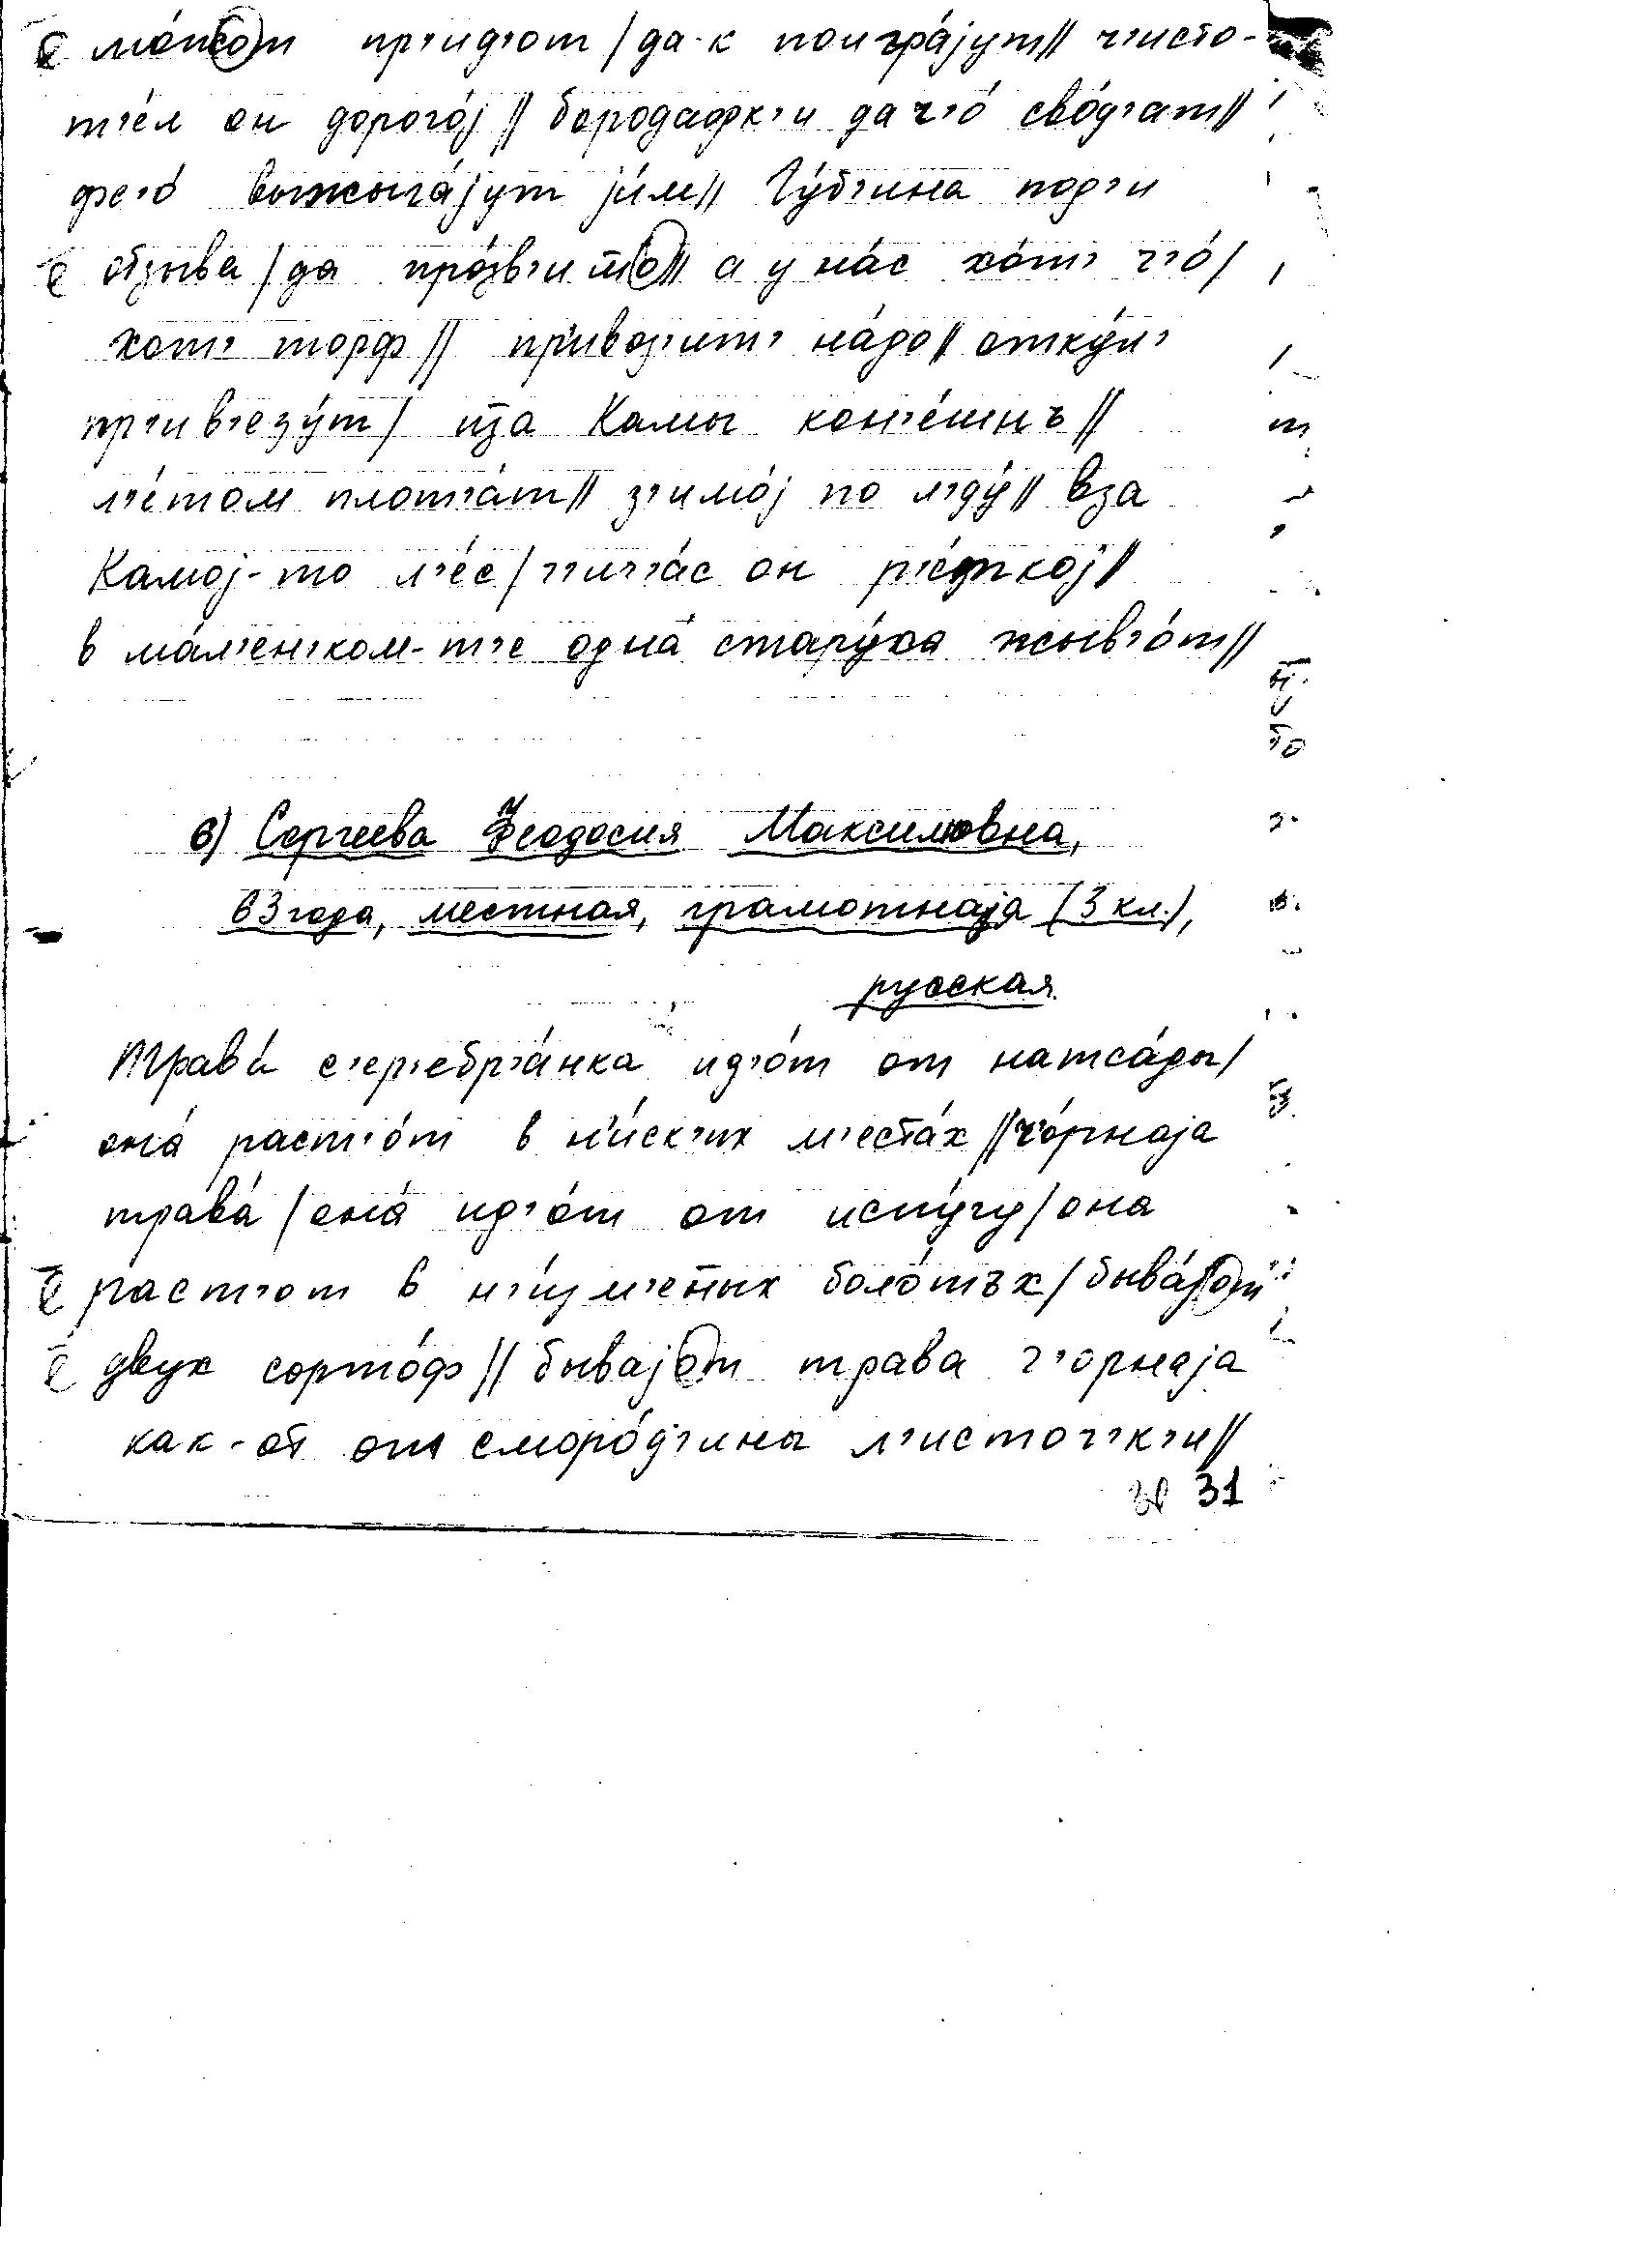 ё мо́жот пр'ид'от / да-к поигра́jут // ч'исто-
т'е́л он дорого́j // бородафк'и да ч'о́ сво́д'ат //
фс'о́ выжыга́jут jи́м // Гу́б'ина под'и
ё обзыва / да про́зв'ишшо // а у на́с хо́т' ч'о́ /
хот' торф // пр'ивоз'ит' на́до // отку́л'
пр'ив'езу́т / иза Камы кон'е́шнъ //
л'е́том плот'а́т // з'имо́j по л'ду́ // вза
Камоj-то л'е́с / ч'ич'а́с он р'е́ткоj //
в ма́л'ен'ком-т'е одна́ стару́ха жыв'о́т //
в) Сергеева Феодосия Максимовна,
63 года, местная, грамотнаjа (3 кл.),
русская
Трава́ с'ер'ебр'а́нка ид'о́т от натса́ды /
она́ раст'о́т в н'и́ск'их м'еста́х // ч'о́рнаjа
трава́ / она́ ид'о́т от испу́гу / она
ё раст'от в н'и́зм'еных боло́тъх / быва́jот
ё двух сорто́ф // бываjот трава ч'орнаjа
как-от от сморо́д'ины л'источ'к'и //
31